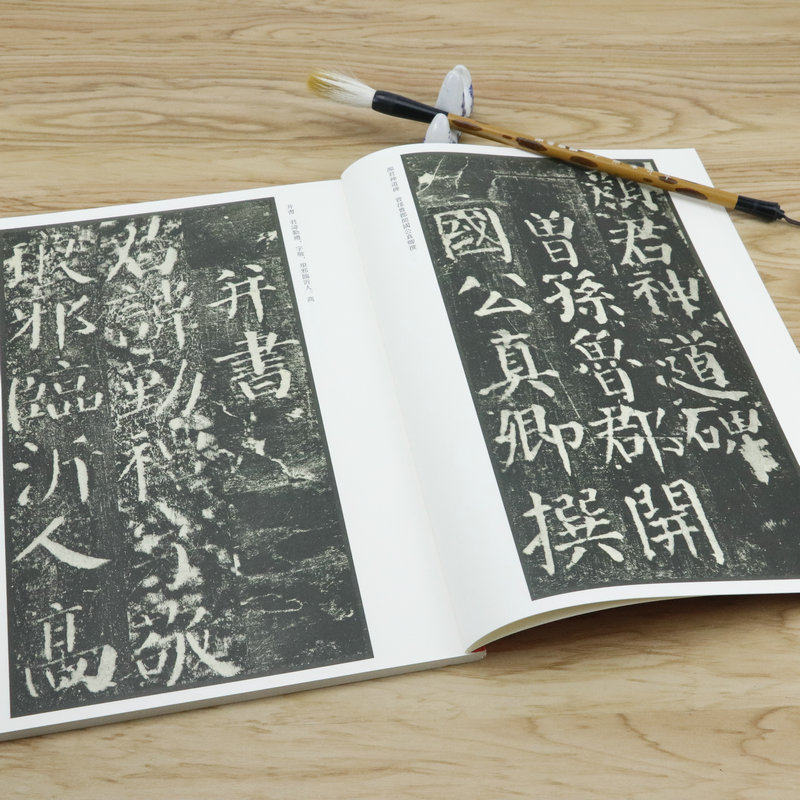 顏君神道碑 曾孫魯郡開國公真卿撰
顏君神道碑
曾孫魯郡開
國公真卿撰
并書 君諱勤禮，字敬，琅邪臨沂人。高
并書
君諱勤禮字敬
琅邪臨沂人高